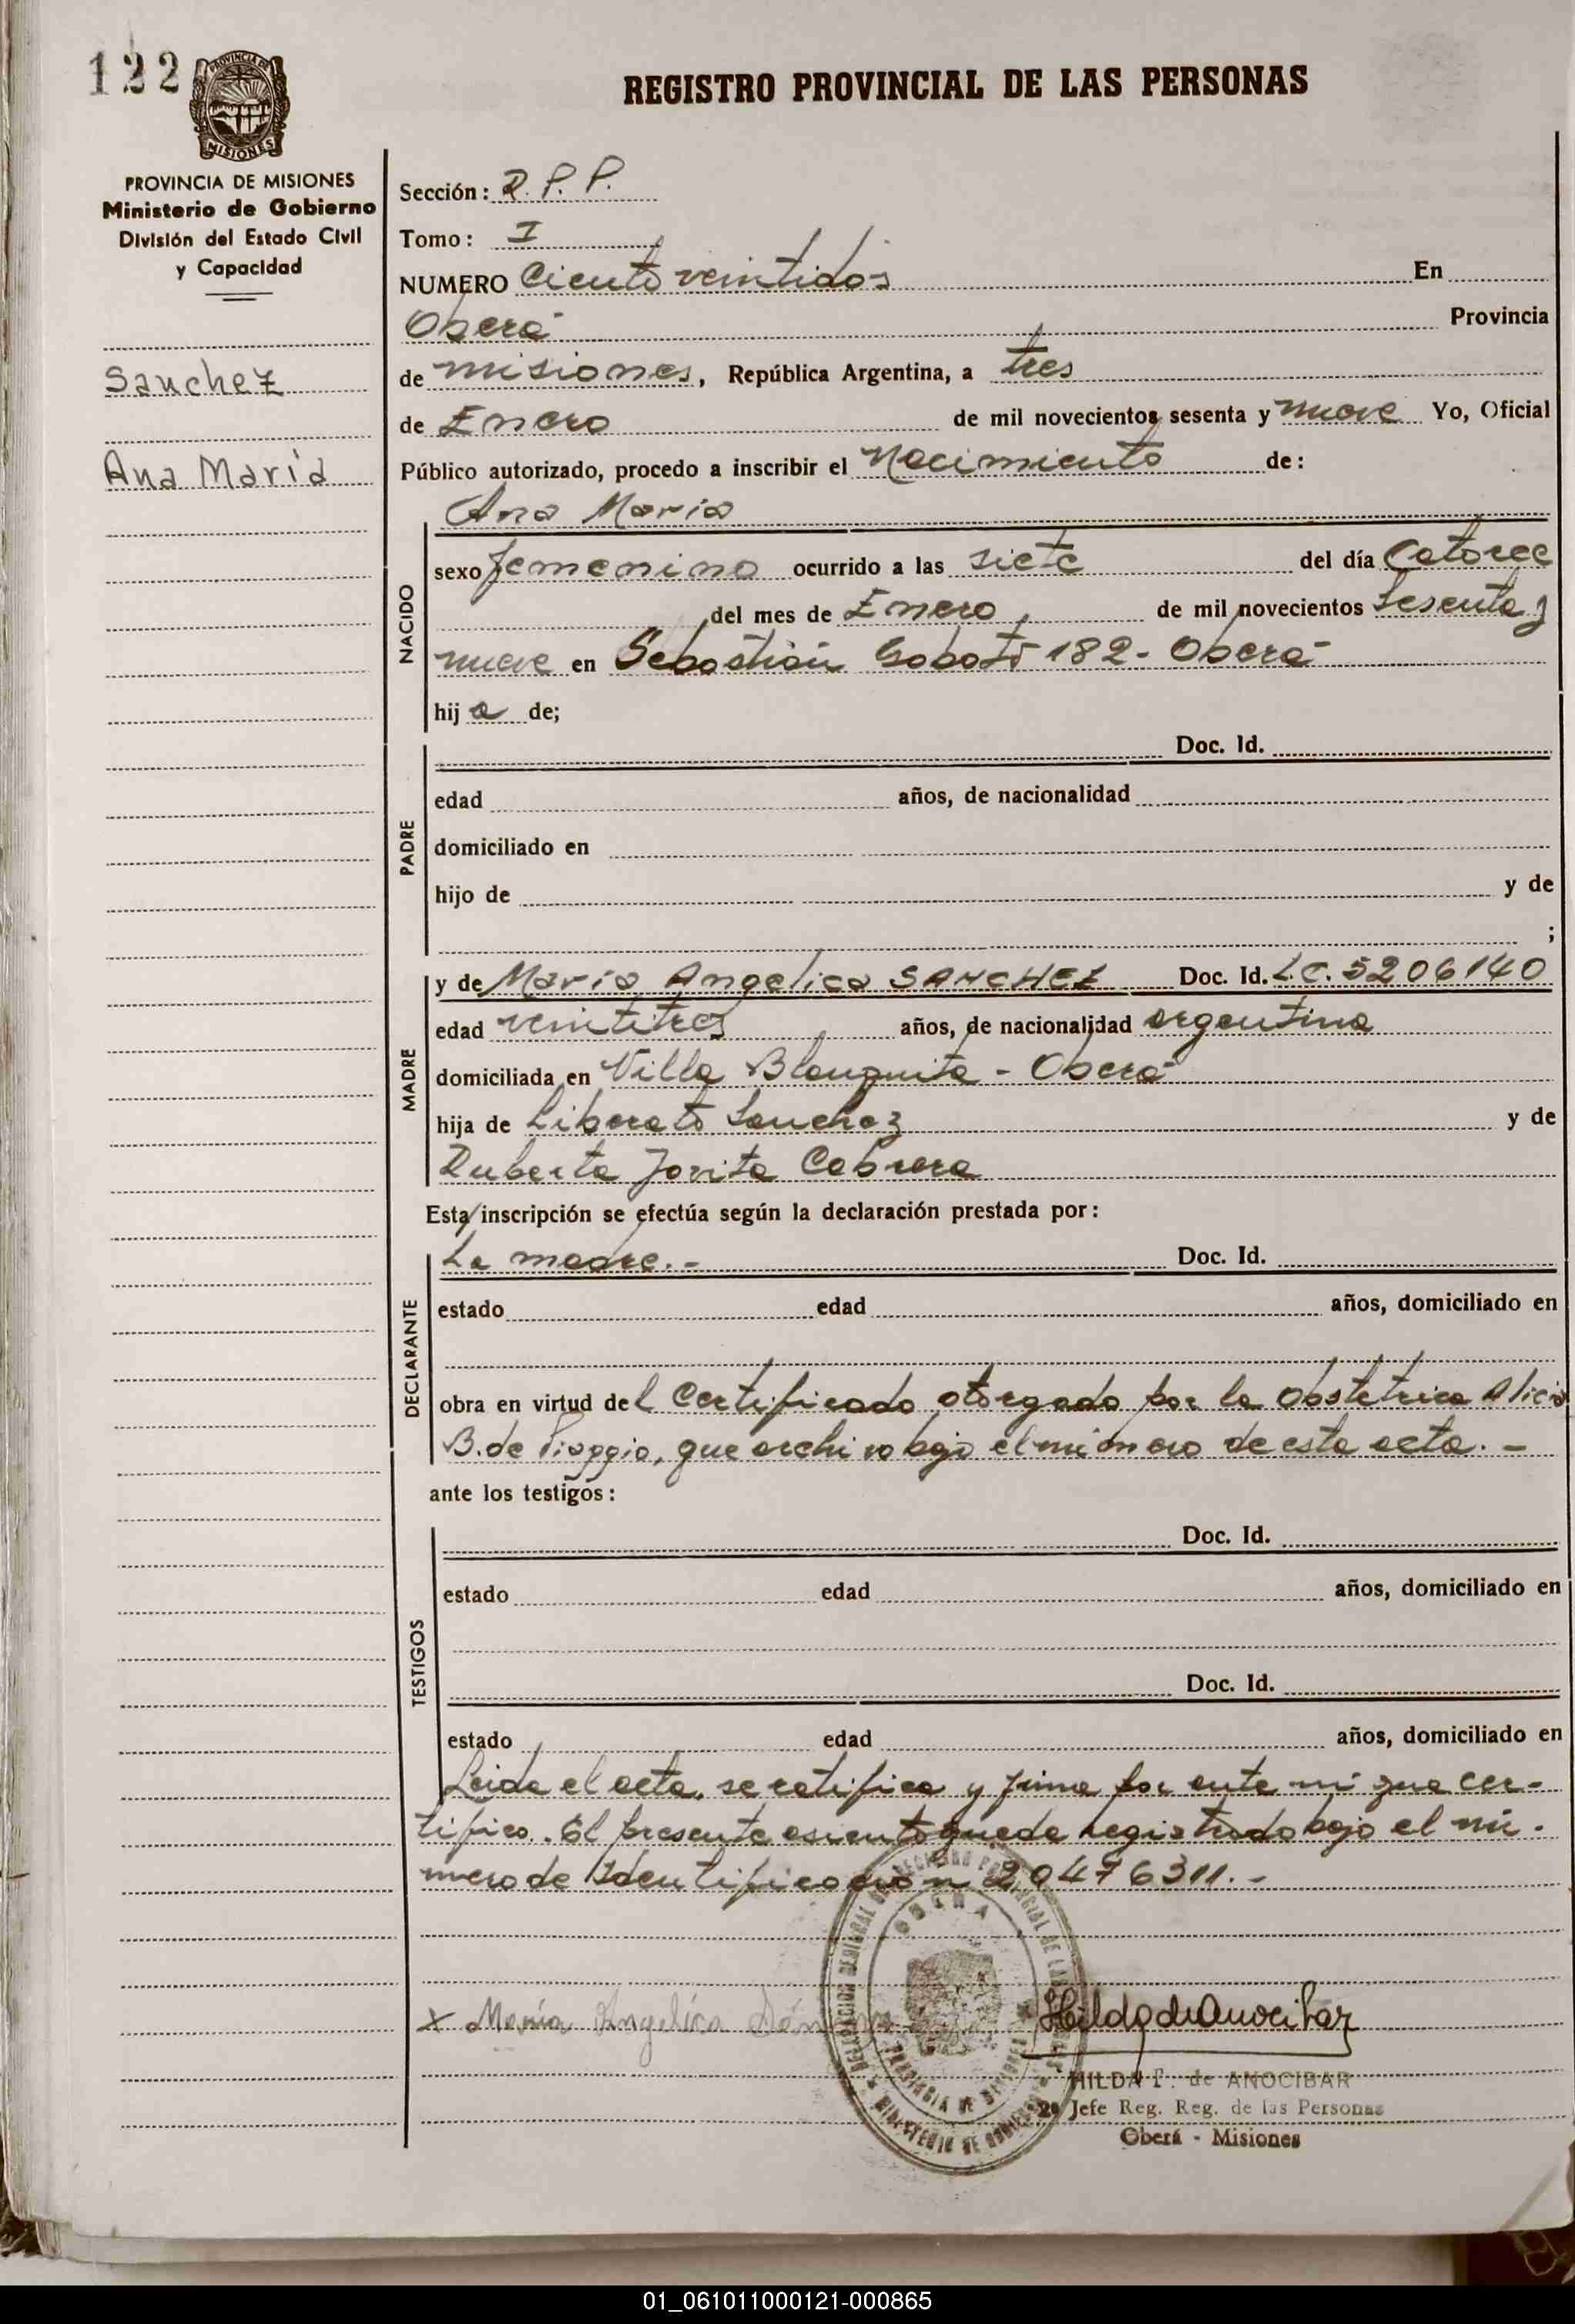 122
PROVINCIA DE
MISIONES
REGISTRO PROVINCIAL DE LAS PERSONAS
PROVINCIA DE MISIONES
Ministerio de Gobierno
División del Estado Civil
y Capacidad
Sanchez
Ana María
Sección: R. P. P.
Tomo: I
NUMERO Ciento veintidos En
Oberá Provincia
de misiones, República Argentina, a tres
de Enero de mil novecientos sesenta y nueve Yo, Oficial
Público autorizado, procedo a inscribir el Nacimiento de:
Ana Maria
NACIDO
sexo femenino ocurrido a las siete del día Catorce
del mes de Enero de mil novecientos Sesenta y
nueve en Sebastián Gaboto 182 - Oberá
hija de;
PADRE
Doc. Id.
edad años, de nacionalidad
domiciliado en
hijo de y de
;
MADRE
y de Maria Angelica SANCHEZ Doc. Id. L.C. 5206140
edad veintitres años, de nacionalidad argentina
domiciliada en Villa Blanquita - Oberá
hija de Liberato Sanchez y de
Ruberta Jovita Cabrera
Esta inscripción se efectúa según la declaración prestada por:
DECLARANTE
La madre.- Doc. Id.
estado edad años, domiciliado en
obra en virtud del Certificado otorgado por la Obstetrica Alicia
B. de Piaggio, que archivo bajo el número de esta acta. -
ante los testigos:
TESTIGOS
Doc. Id.
estado edad años, domiciliado en
Doc. Id.
estado edad años, domiciliado en
Leida el acta, se ratifica y firma por ante mi que cer-
tifico. El presente asiento queda registrado bajo el nú-
mero de Identificación 20476311.-
x María Angélica Sán
Hilda de Anocibar
HILDA F. de ANOCIBAR
2º Jefe Reg. Reg. de las Personas
Oberá - Misiones
OBERA
PROVINCIA DE MISIONES
MINISTERIO DE GOBIERNO
01_061011000121-000865